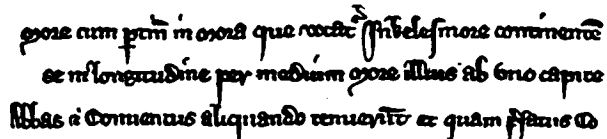 more cum ptin in mora que vocat more continente
de in longitudine per medium more illius ab uno capite
Abbas et Conventus aliquando tenuerunt et quam